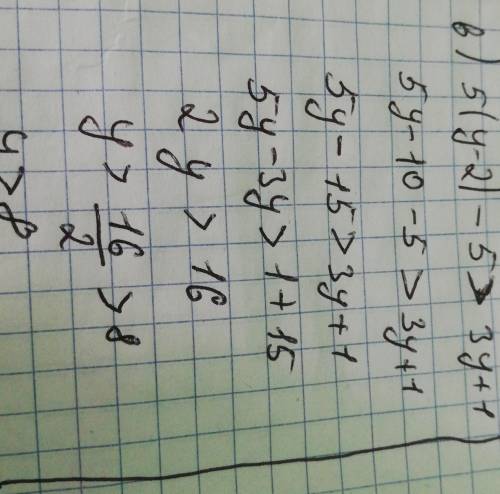 в) 5(y-2)-5>3y+1
5y-10-5>3y+1
5y-15>3y+1
5y-3y>1+15
2y>16
y>16/2>8
y>8